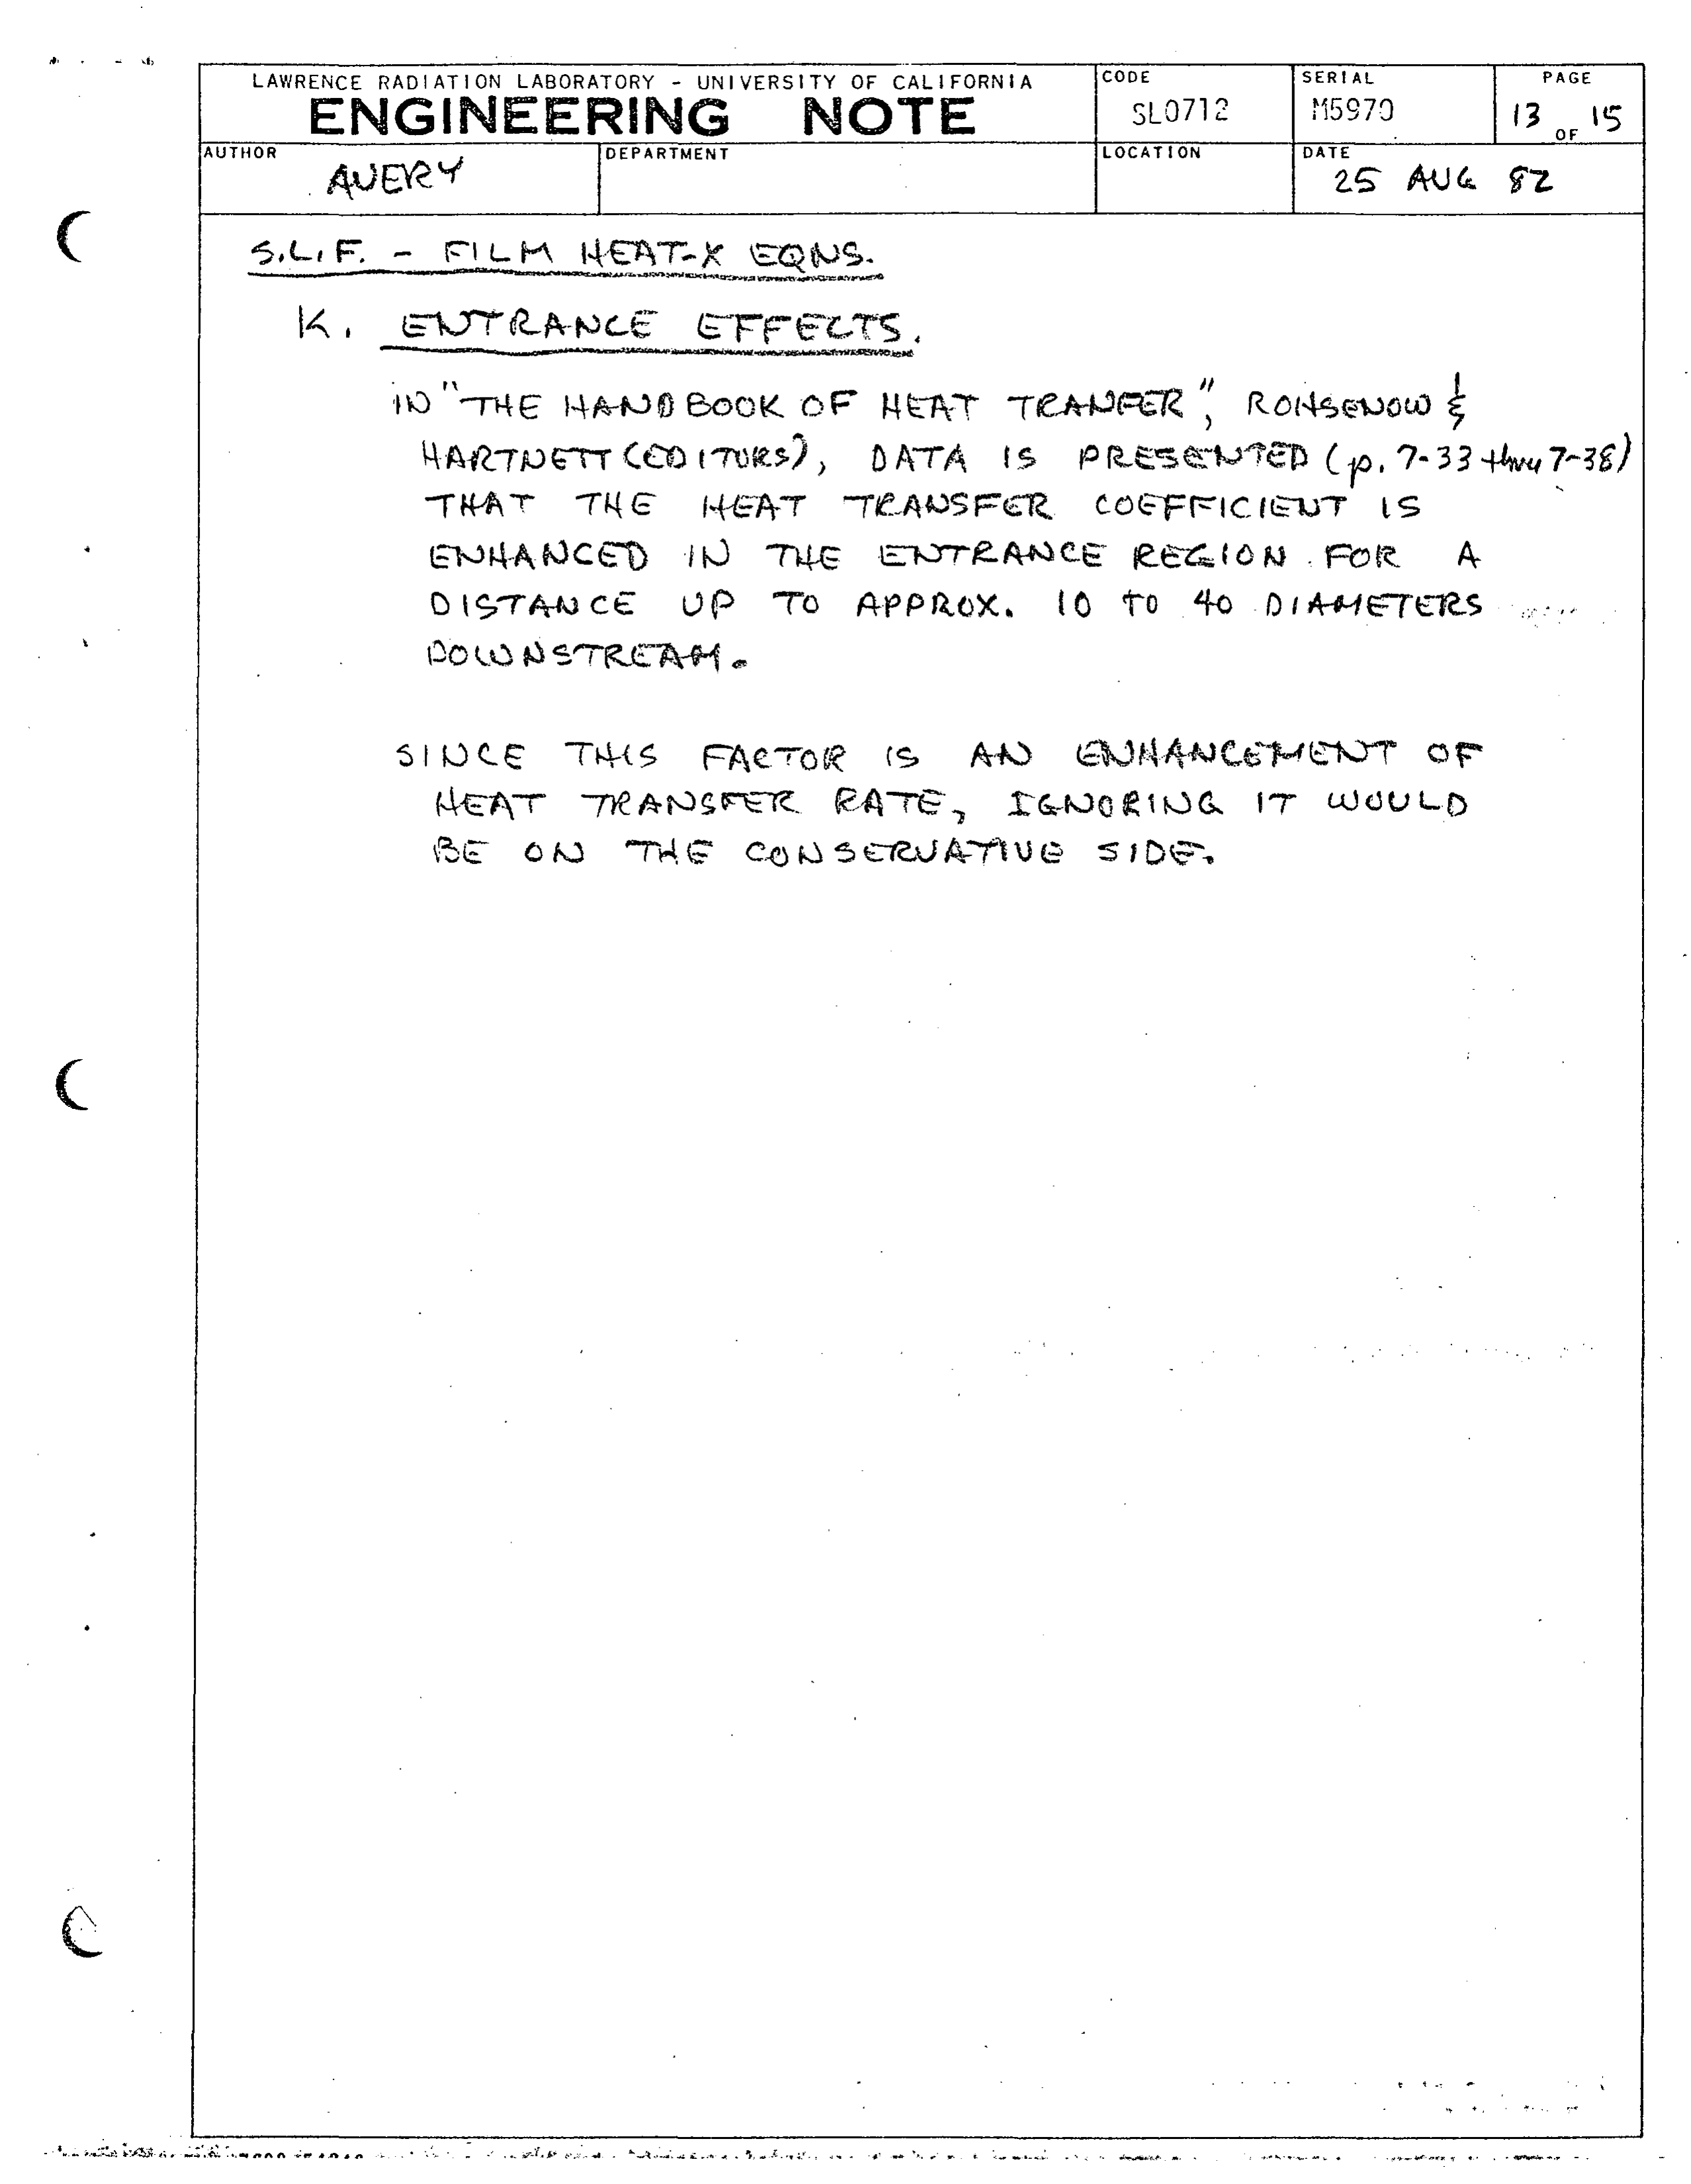 LAWRENCE RADIATION LABORATORY - UNIVERSITY OF CALIFORNIA
ENGINEERING NOTE
CODE
SL0712
SERIAL
M5970
PAGE
13 OF 15
AUTHOR
AVERY
DEPARTMENT
LOCATION
DATE
25 AUG 82
S.L.F. - FILM HEAT-X EQNS.
K. ENTRANCE EFFECTS.
IN "THE HANDBOOK OF HEAT TRANFER", ROHSENOW &
HARTNETT (EDITORS), DATA IS PRESENTED (p. 7-33 thru 7-38)
THAT THE HEAT TRANSFER COEFFICIENT IS
ENHANCED IN THE ENTRANCE REGION FOR A
DISTANCE UP TO APPROX. 10 TO 40 DIAMETERS
DOWNSTREAM.
SINCE THIS FACTOR IS AN ENHANCEMENT OF
HEAT TRANSFER RATE, IGNORING IT WOULD
BE ON THE CONSERVATIVE SIDE.